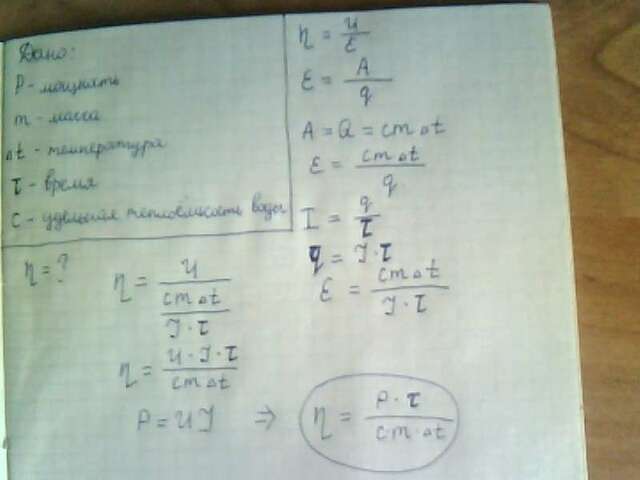 Дано:
P - мощность
m - масса
Δt - температура
τ - время
c - удельная теплоёмкость воды
η = ?
η = U/ε
ε = A/q
A = Q = cmΔt
ε = cmΔt/q
I = q/τ
q = I·τ
ε = cmΔt/(I·τ)
η = U/(cmΔt/(I·τ))
η = U·I·τ/(cmΔt)
P = UI ⇒ η = P·τ/(c·m·Δt)